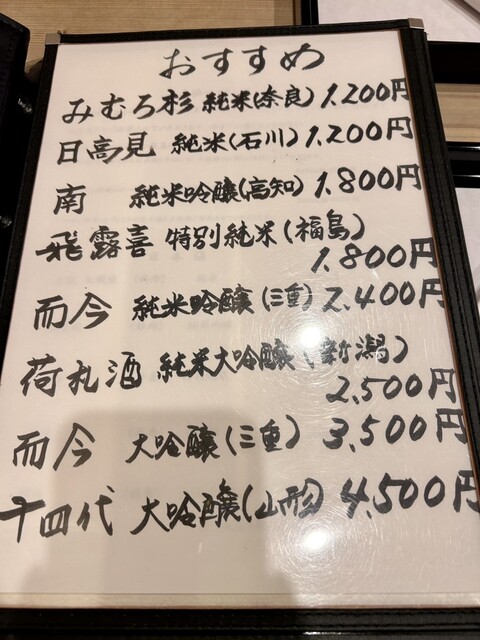 おすすめ
みむろ杉 純米(奈良) 1.200円
日高見 純米(石川) 1,200円
南 純米吟醸(高知) 1.800円
飛露喜 特別純米(福島)
1.800円
而今 純米吟醸(三重) 2,400円
荷札酒 純米大吟醸(新潟)
2.500円
而今 大吟醸(三重) 3,500円
十四代 大吟醸(山形) 4,500円